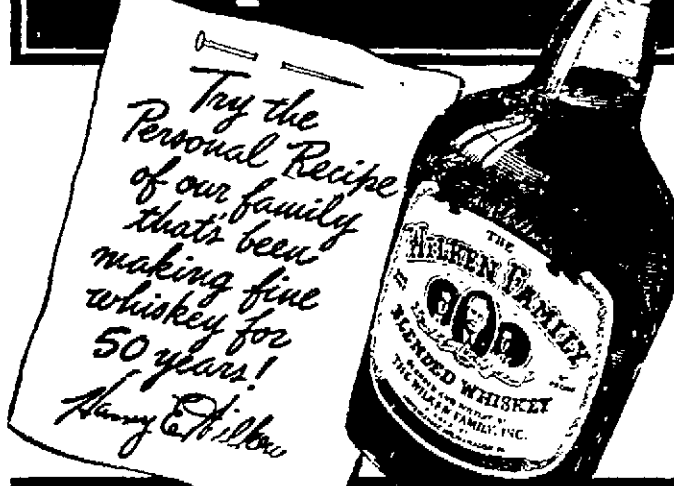 Try the
Personal Recipe
of our family
that's been
making fine
whiskey for
50 years!
Harry E. Wilken
THE
WILKEN FAMILY
BLENDED WHISKEY
THE WILKEN FAMILY, INC.